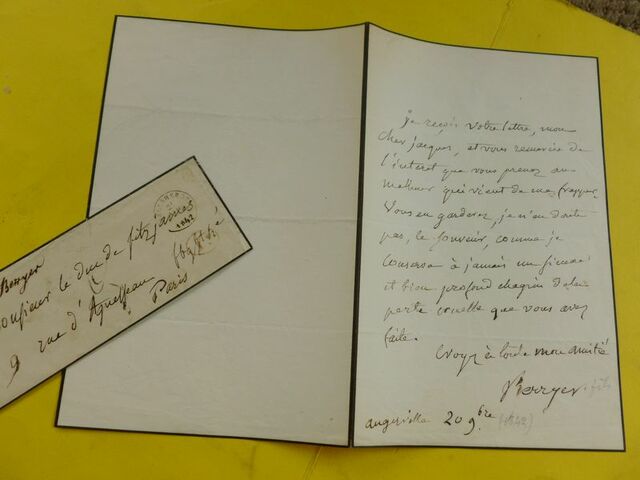 je reçois votre lettre, mon
cher jacques, et vous remercie de
l'interet que vous prenez au
malheur qui vient de me frapper.
Vous en garderez, je n'en doute
pas, le souvenir comme je
conserve à jamais un sincère
et bien profond chagrin de la
perte cruelle que vous avez
faite.
Croyez à toute mon amitié
Berryer fils
augerville 20 9bre (1842)
Berryer
Monsieur le duc de fitz james
9 rue d'Aguesseau
Paris
1842